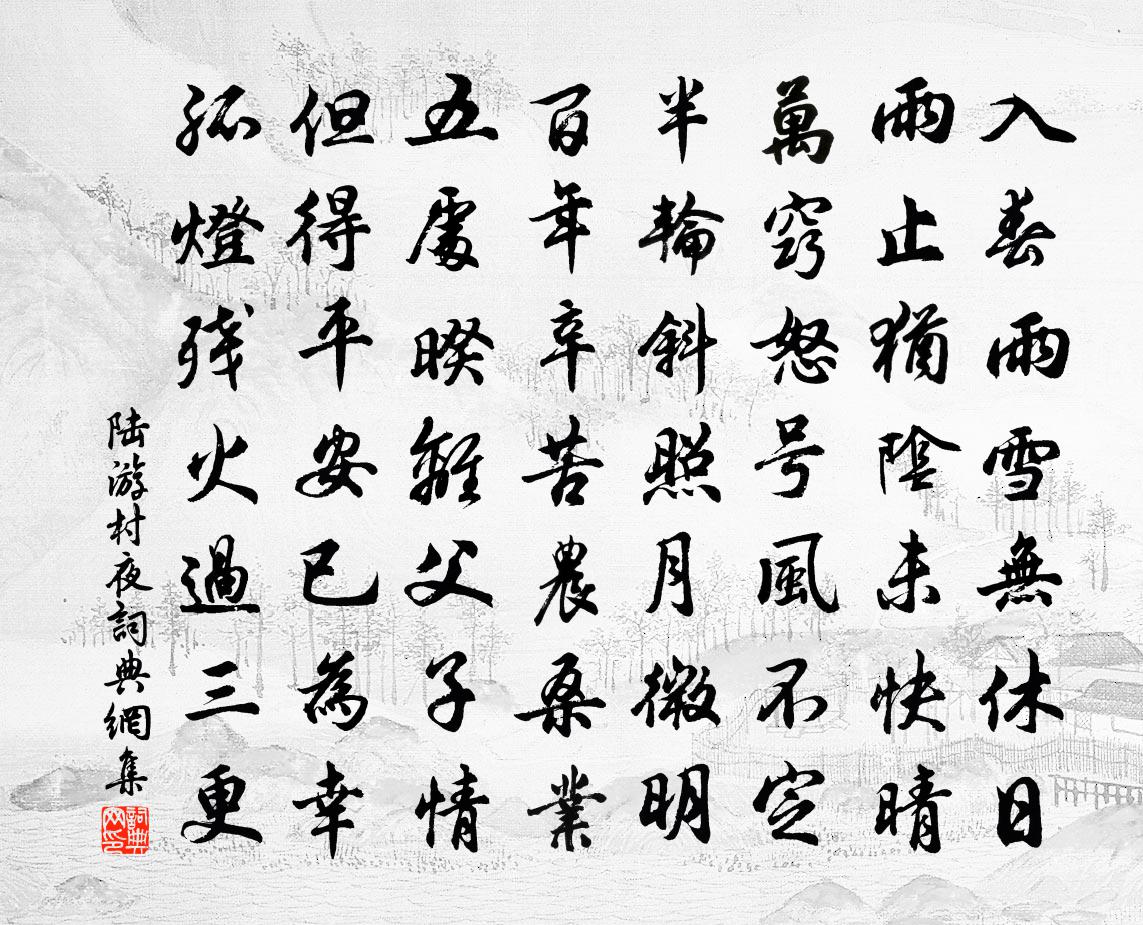 入春雨雪無休日
雨止猶陰未快晴
萬竅怒号風不定
半輪斜照月微明
百年辛苦農桑業
五處暌離父子情
但得平安已為幸
孤燈残火過三更
陸游村夜詞典網集
詞典网印